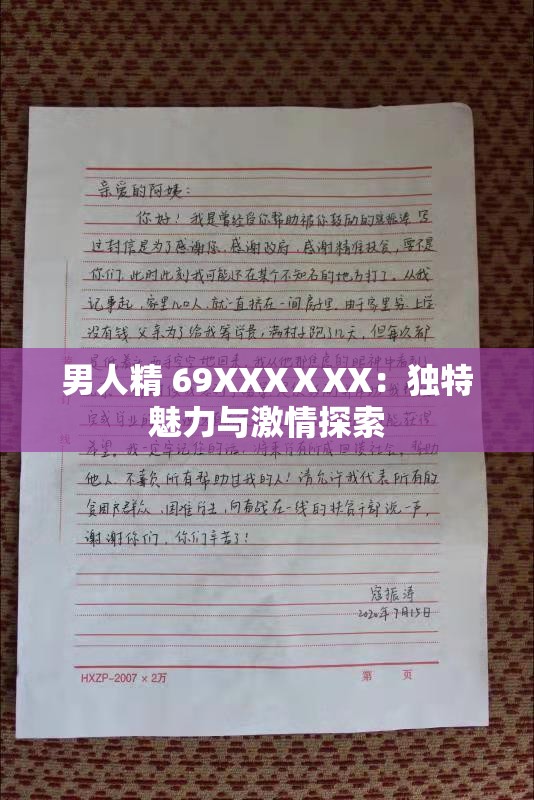 亲爱的阿姨：
你好！我是曾经自你帮助被你鼓励的寇振涛 写
这封信是为了感谢你，感谢政府，感谢精准扶贫，要不是
你们，此时此刻我可能还在某个不知名的地方打工。从我
记事起，家里几口人，就一直挤在一间房子里。由于家里穷，上学
没有钱，父亲为了给我筹学费，满村子跑了几天，但每次都
男人精 69XXXⅩXX：独特
魅力与激情探索
希望。我一定牢记您的话，将来有所成回馈社会，帮助
他人，不辜负所有帮助过我的人！请允许我代表所有的
贫困民群众，困难学生，向奋战在一线的扶贫干部说一声，
谢谢你们，你们辛苦了！
寇振涛
2020年7月15日
HXZP-2007 × 2万 第 页